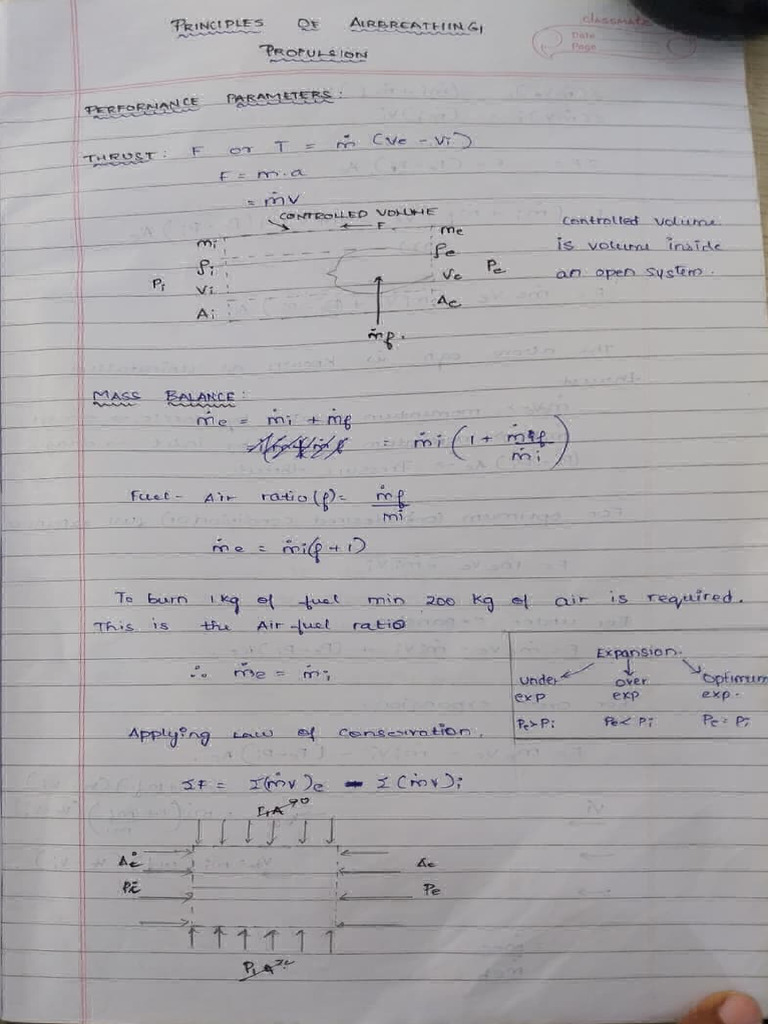 classmate
Date
Page
PRINCIPLES OF AIRBREATHING
PROPULSION
PERFORMANCE PARAMETERS:
THRUST: F or T = ṁ (Ve - Vi)
F = m.a
= ṁv
CONTROLLED VOLUME
← F
ṁi
ρi
Pi
Vi
Ai
ṁe
ρe
Ve
Pe
Ae
ṁf.
controlled volume
is volume inside
an open system.
MASS BALANCE:
ṁe = ṁi + ṁf
= ṁi (1 + ṁf/ṁi)
Fuel - Air ratio (f) = ṁf/ṁi
ṁe = ṁi(f + 1)
To burn 1 kg of fuel min 200 kg of air is required.
This is the Air fuel ratio
∴ ṁe = ṁi
Expansion.
under exp
over exp
Optimum exp.
Pe > Pi
Pe < Pi
Pe = Pi
Applying Law of conservation.
ΣF = Σ(ṁv)e - Σ(ṁv)i
Ai
Pi
Ae
Pe